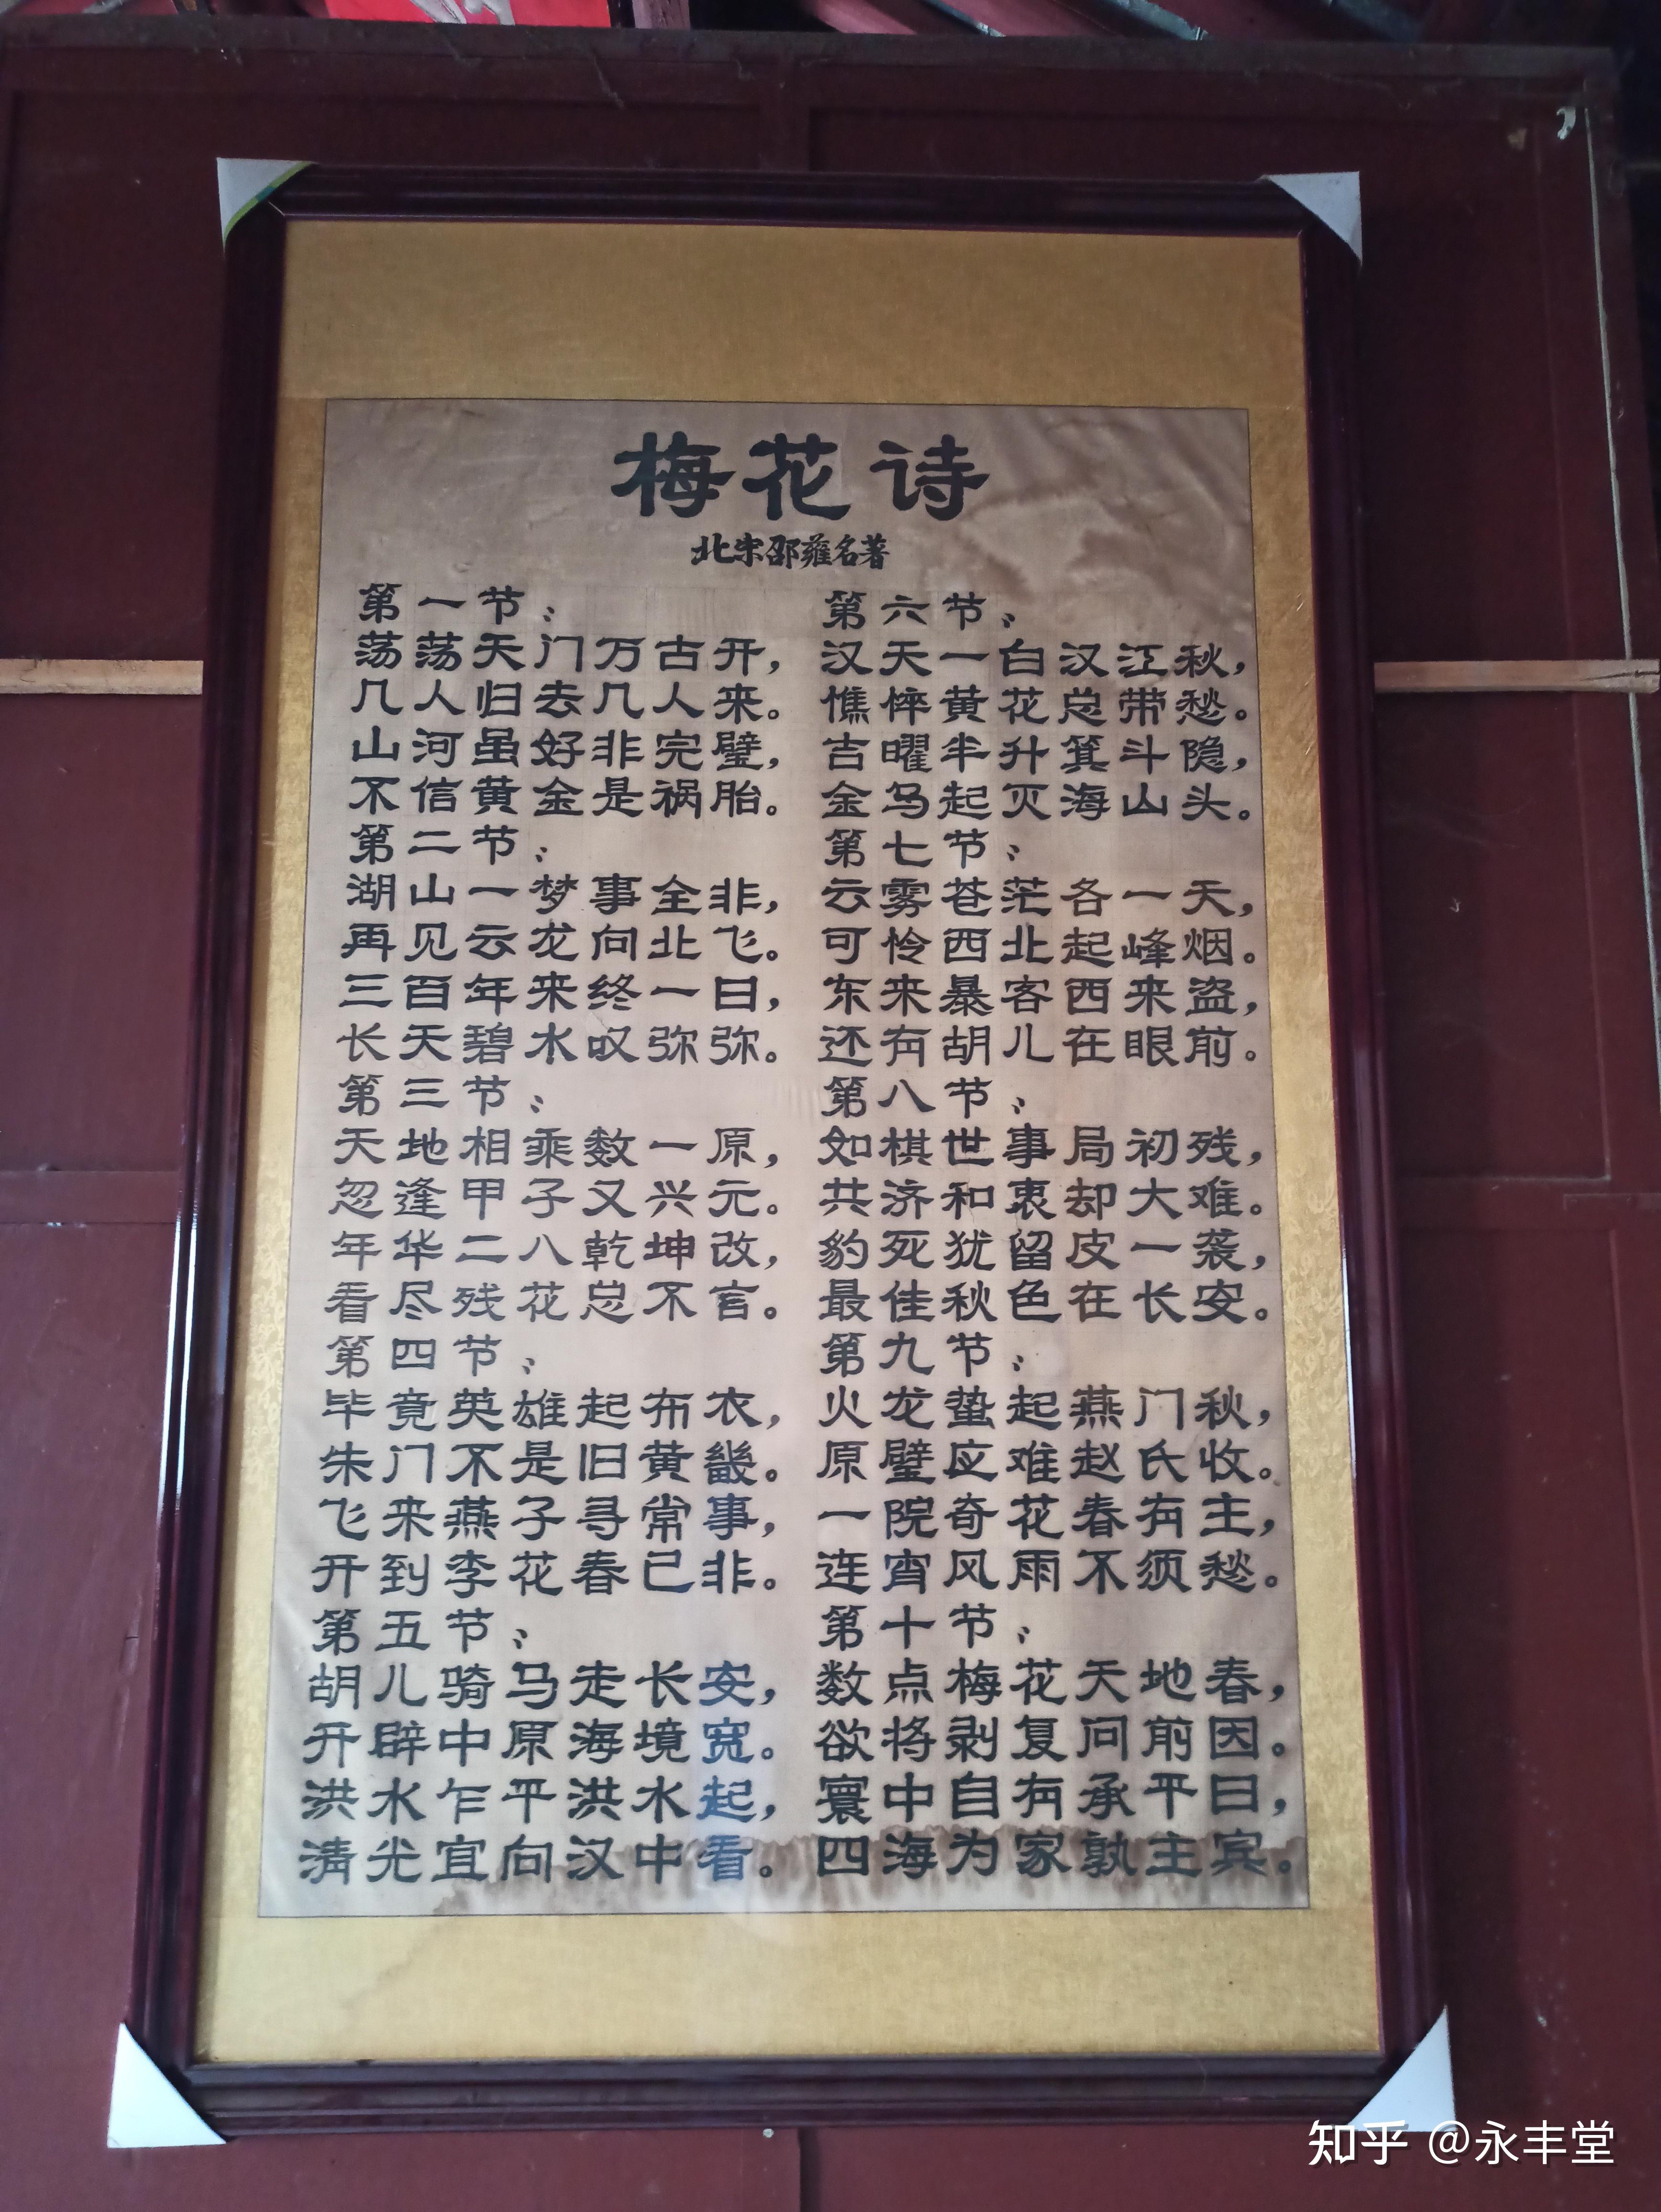 梅花诗
北宋邵雍名著
第一节：
荡荡天门万古开，
几人归去几人来。
山河虽好非完璧，
不信黄金是祸胎。
第二节：
湖山一梦事全非，
再见云龙向北飞。
三百年来终一日，
长天碧水叹弥弥。
第三节：
天地相乘数一原，
忽逢甲子又兴元。
年华二八乾坤改，
看尽残花总不言。
第四节：
毕竟英雄起布衣，
朱门不是旧黄畿。
飞来燕子寻常事，
开到李花春已非。
第五节：
胡儿骑马走长安，
开辟中原海境宽。
洪水乍平洪水起，
清光宜向汉中看。
第六节：
汉天一白汉江秋，
憔悴黄花总带愁。
吉曜半升箕斗隐，
金乌起灭海山头。
第七节：
云雾苍茫各一天，
可怜西北起峰烟。
东来暴客西来盗，
还有胡儿在眼前。
第八节：
如棋世事局初残，
共济和衷却大难。
豹死犹留皮一袭，
最佳秋色在长安。
第九节：
火龙蛰起燕门秋，
原璧应难赵氏收。
一院奇花春有主，
连宵风雨不须愁。
第十节：
数点梅花天地春，
欲将剥复问前因。
寰中自有承平日，
四海为家孰主宾。
知乎 @永丰堂